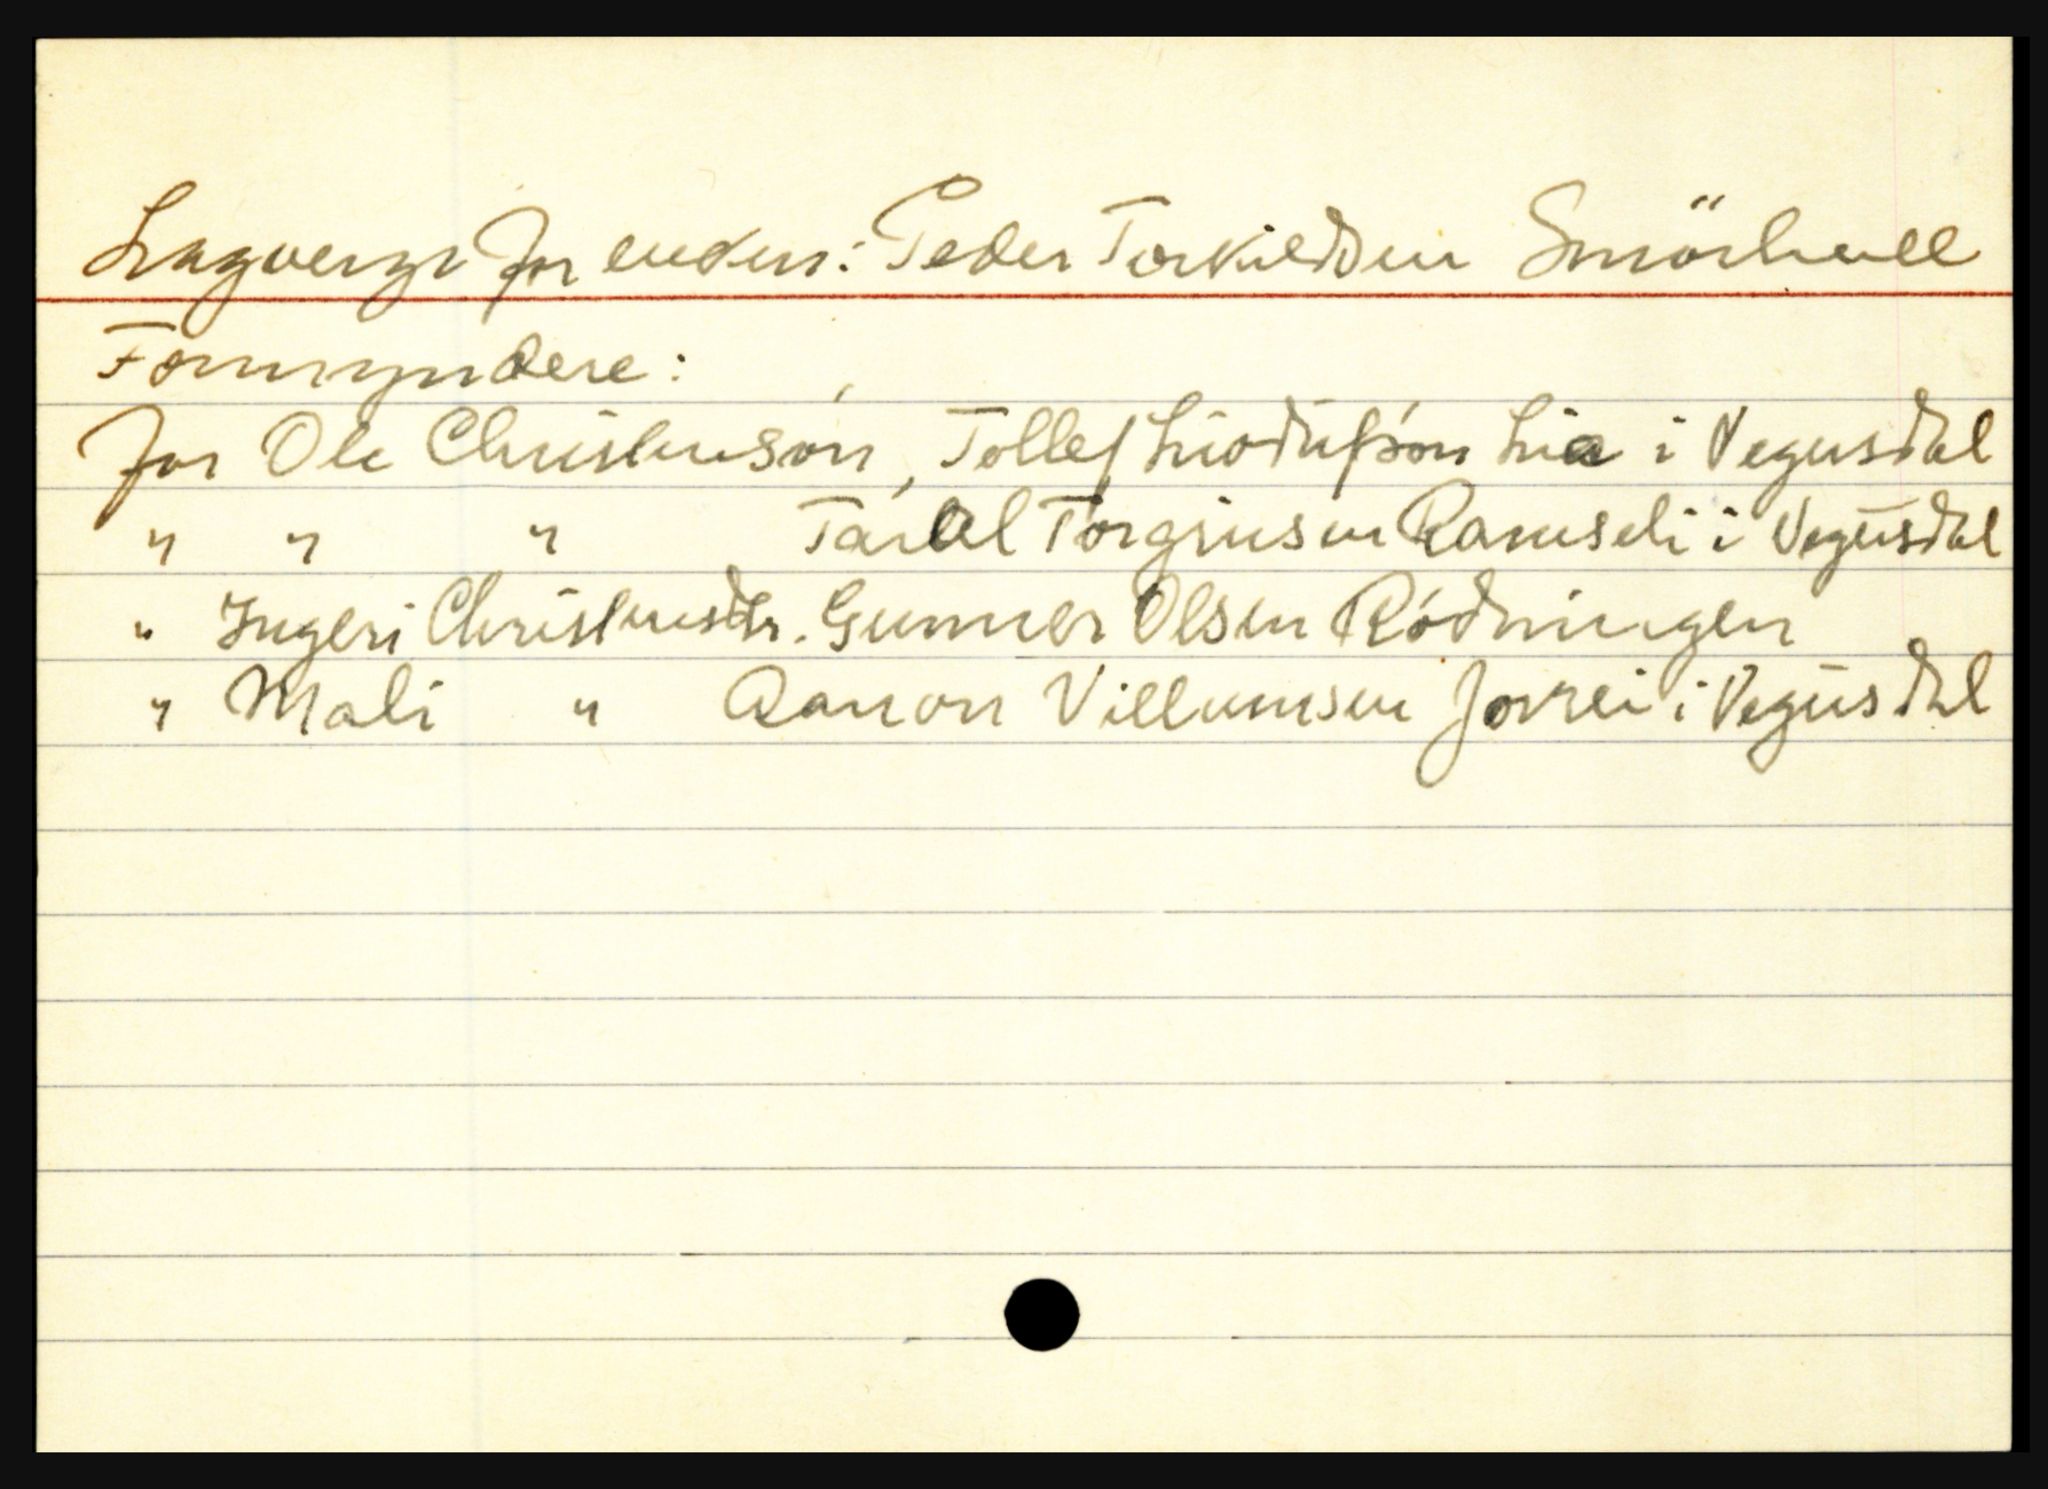 Lagverge for enken: Peder Torkildsen Smörhuell
Formyndere:
for Ole Christensön, Tollef Liodufsøn Lia i Vegusdal
" " " Tarald Torgrinsen Ramseli i Vegusdal
" Ingeri Christensdtr. Gunner Olsen Rødningen
" Mali " Aanon Villumsen Jovrei i Vegusdal